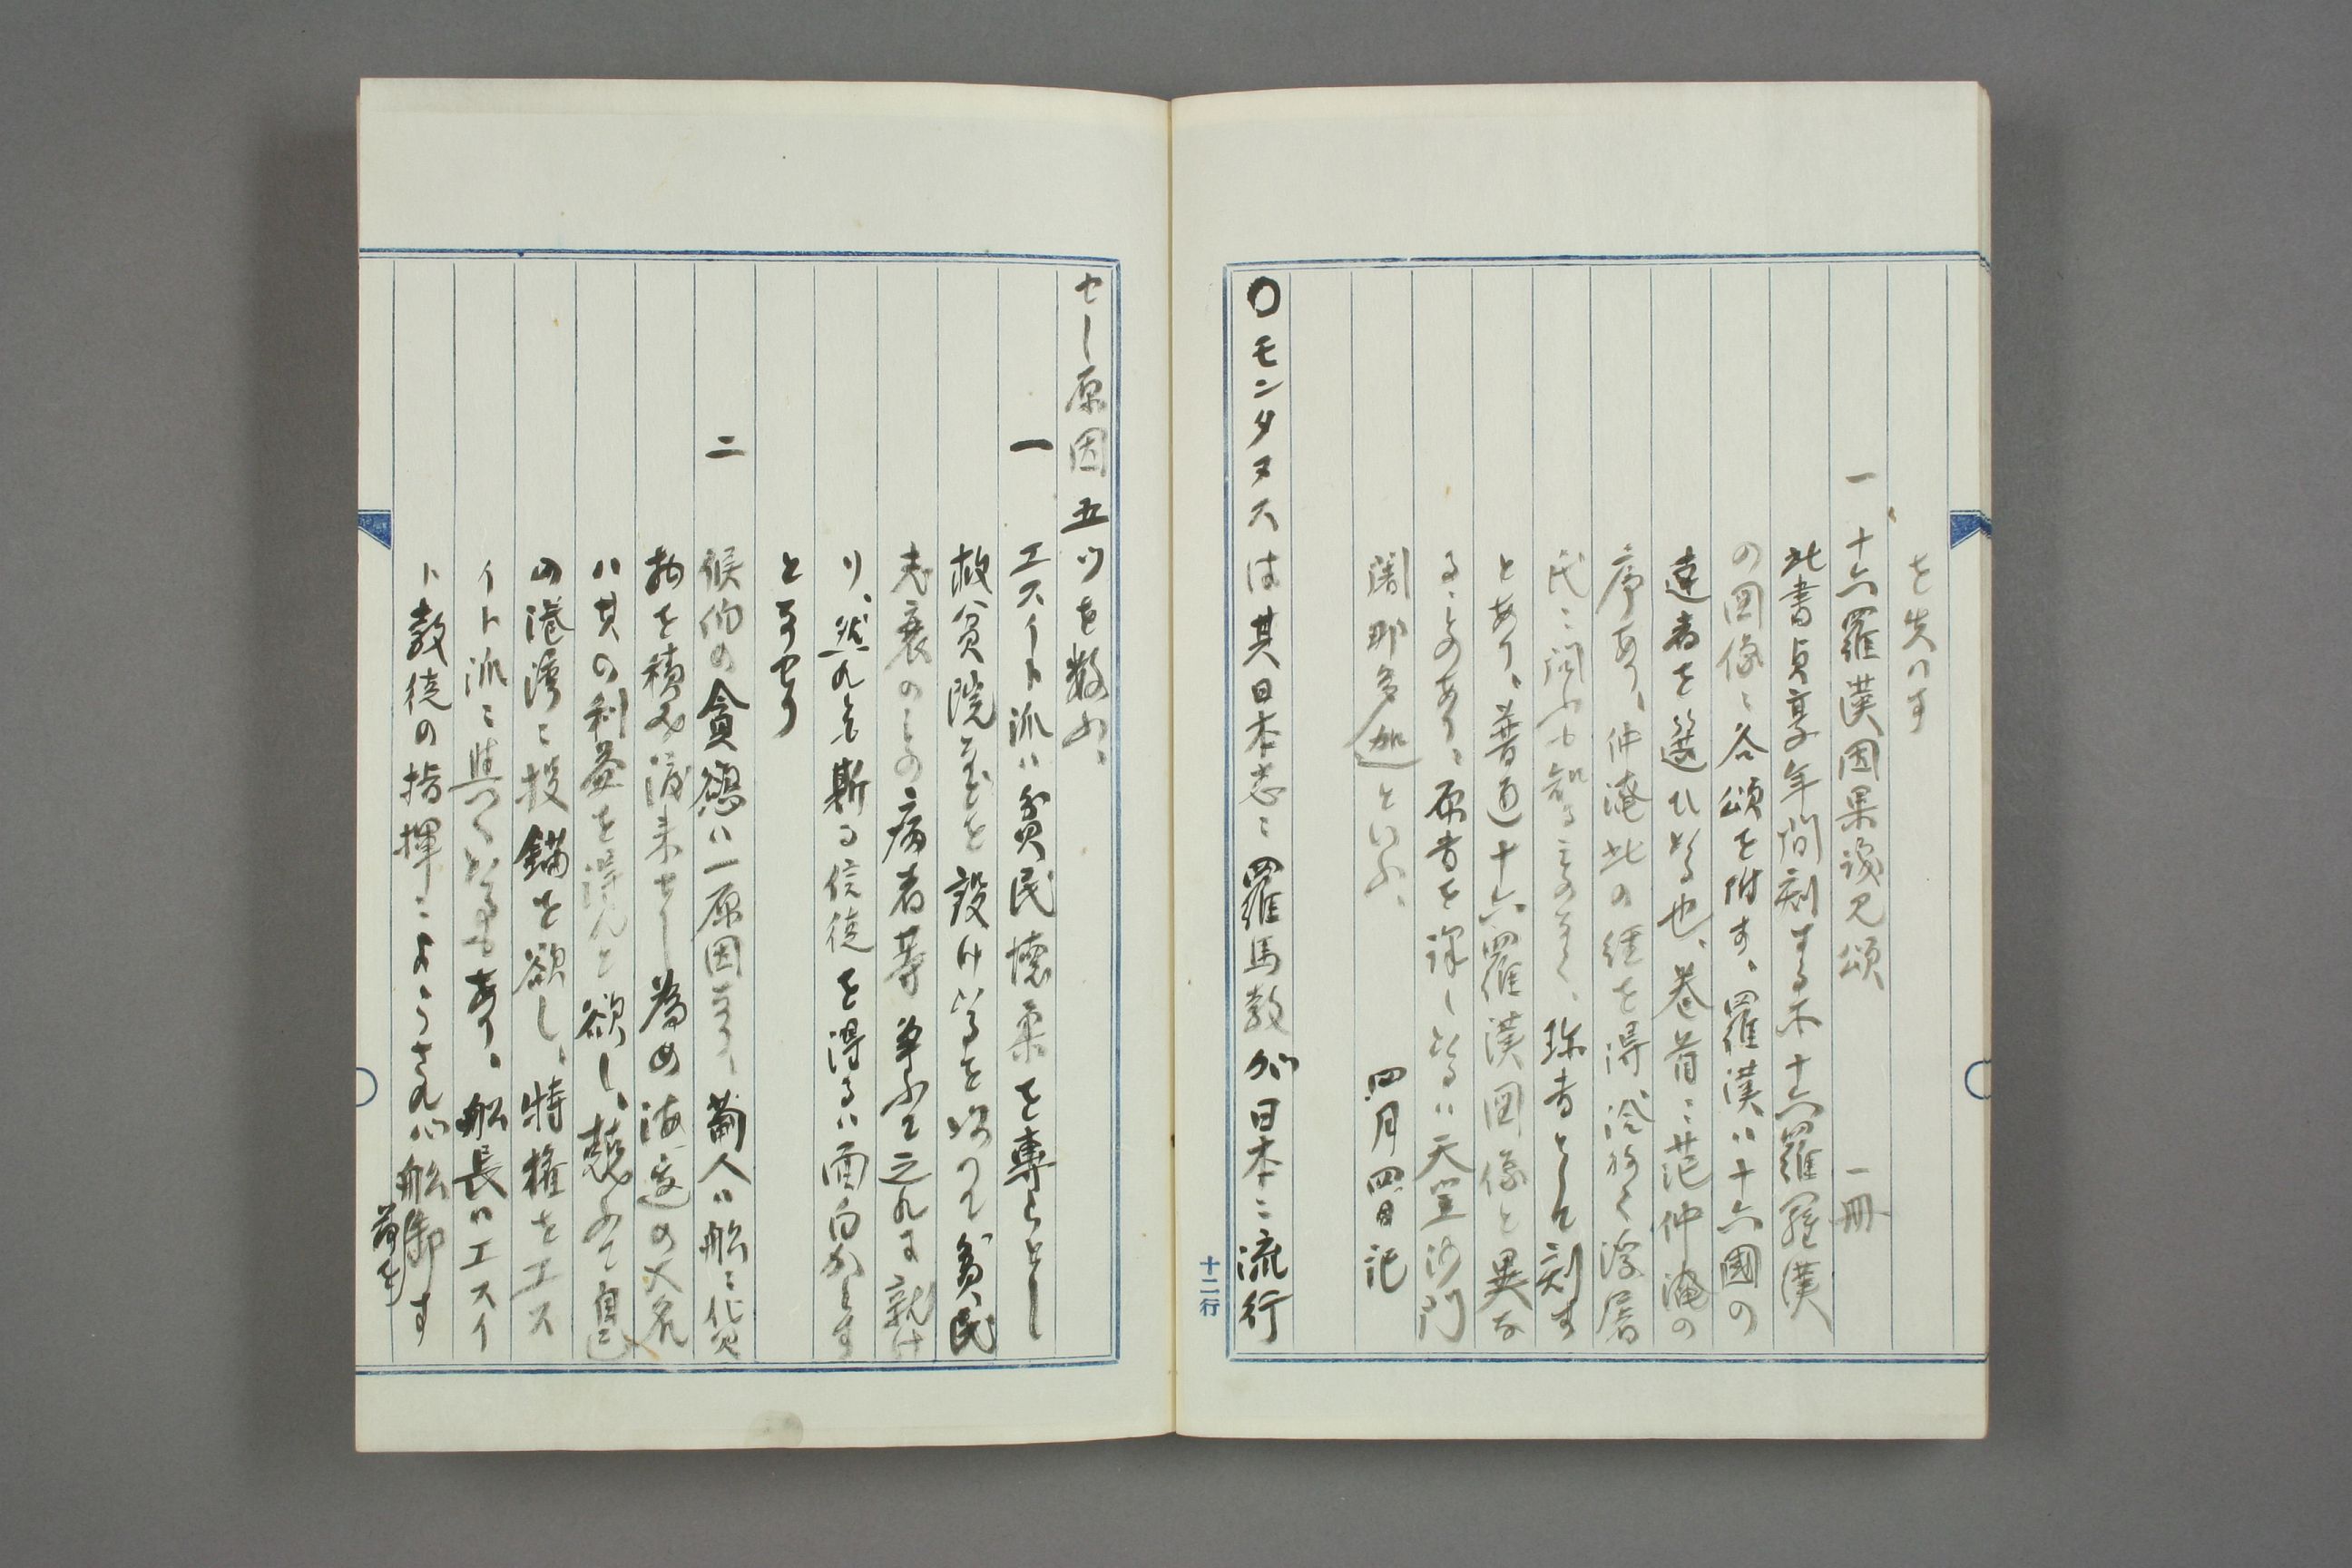 を失ハす
一 十六羅漢因果識見頌 一冊
此書貞享年間刻する本十六羅漢
の図像ニ各頌を附す、羅漢ハ十六國の
達者を選ひたる也、巻首ニ范仲淹の
序あり、仲淹此の経を得、浮屠
氏ニ問ふも知るものなく、珍書として刻す
とあり、普通十六羅漢図像と異な
るものあり、原書を訳したるハ天竺沙門
闍那多迦といふ、
四月四日記
〇モンタヌスは其日本志ニ羅馬教が日本ニ流行
せし原因五ツを数ふ、
一 エスイト派ハ貧民懐柔を専らとし
救貧院などを設けたるを以つて貧民
老衰のもの、病者等争ふて之れに就け
り、然れとも斯る信徒を得るハ面白からす
となせり
二 候伯の貪慾ハ一原因なり、葡人ハ船ニ貨
物を積み渡来せし為め海辺の大名
ハ其の利益を得んと欲し、競ふて自己
の港湾ニ投錨を欲し、特権をエス
イト派ニ与へたるもあり、船長ハエスイ
ト教徒の指揮によらされハ船を卸す
荷を
十二行